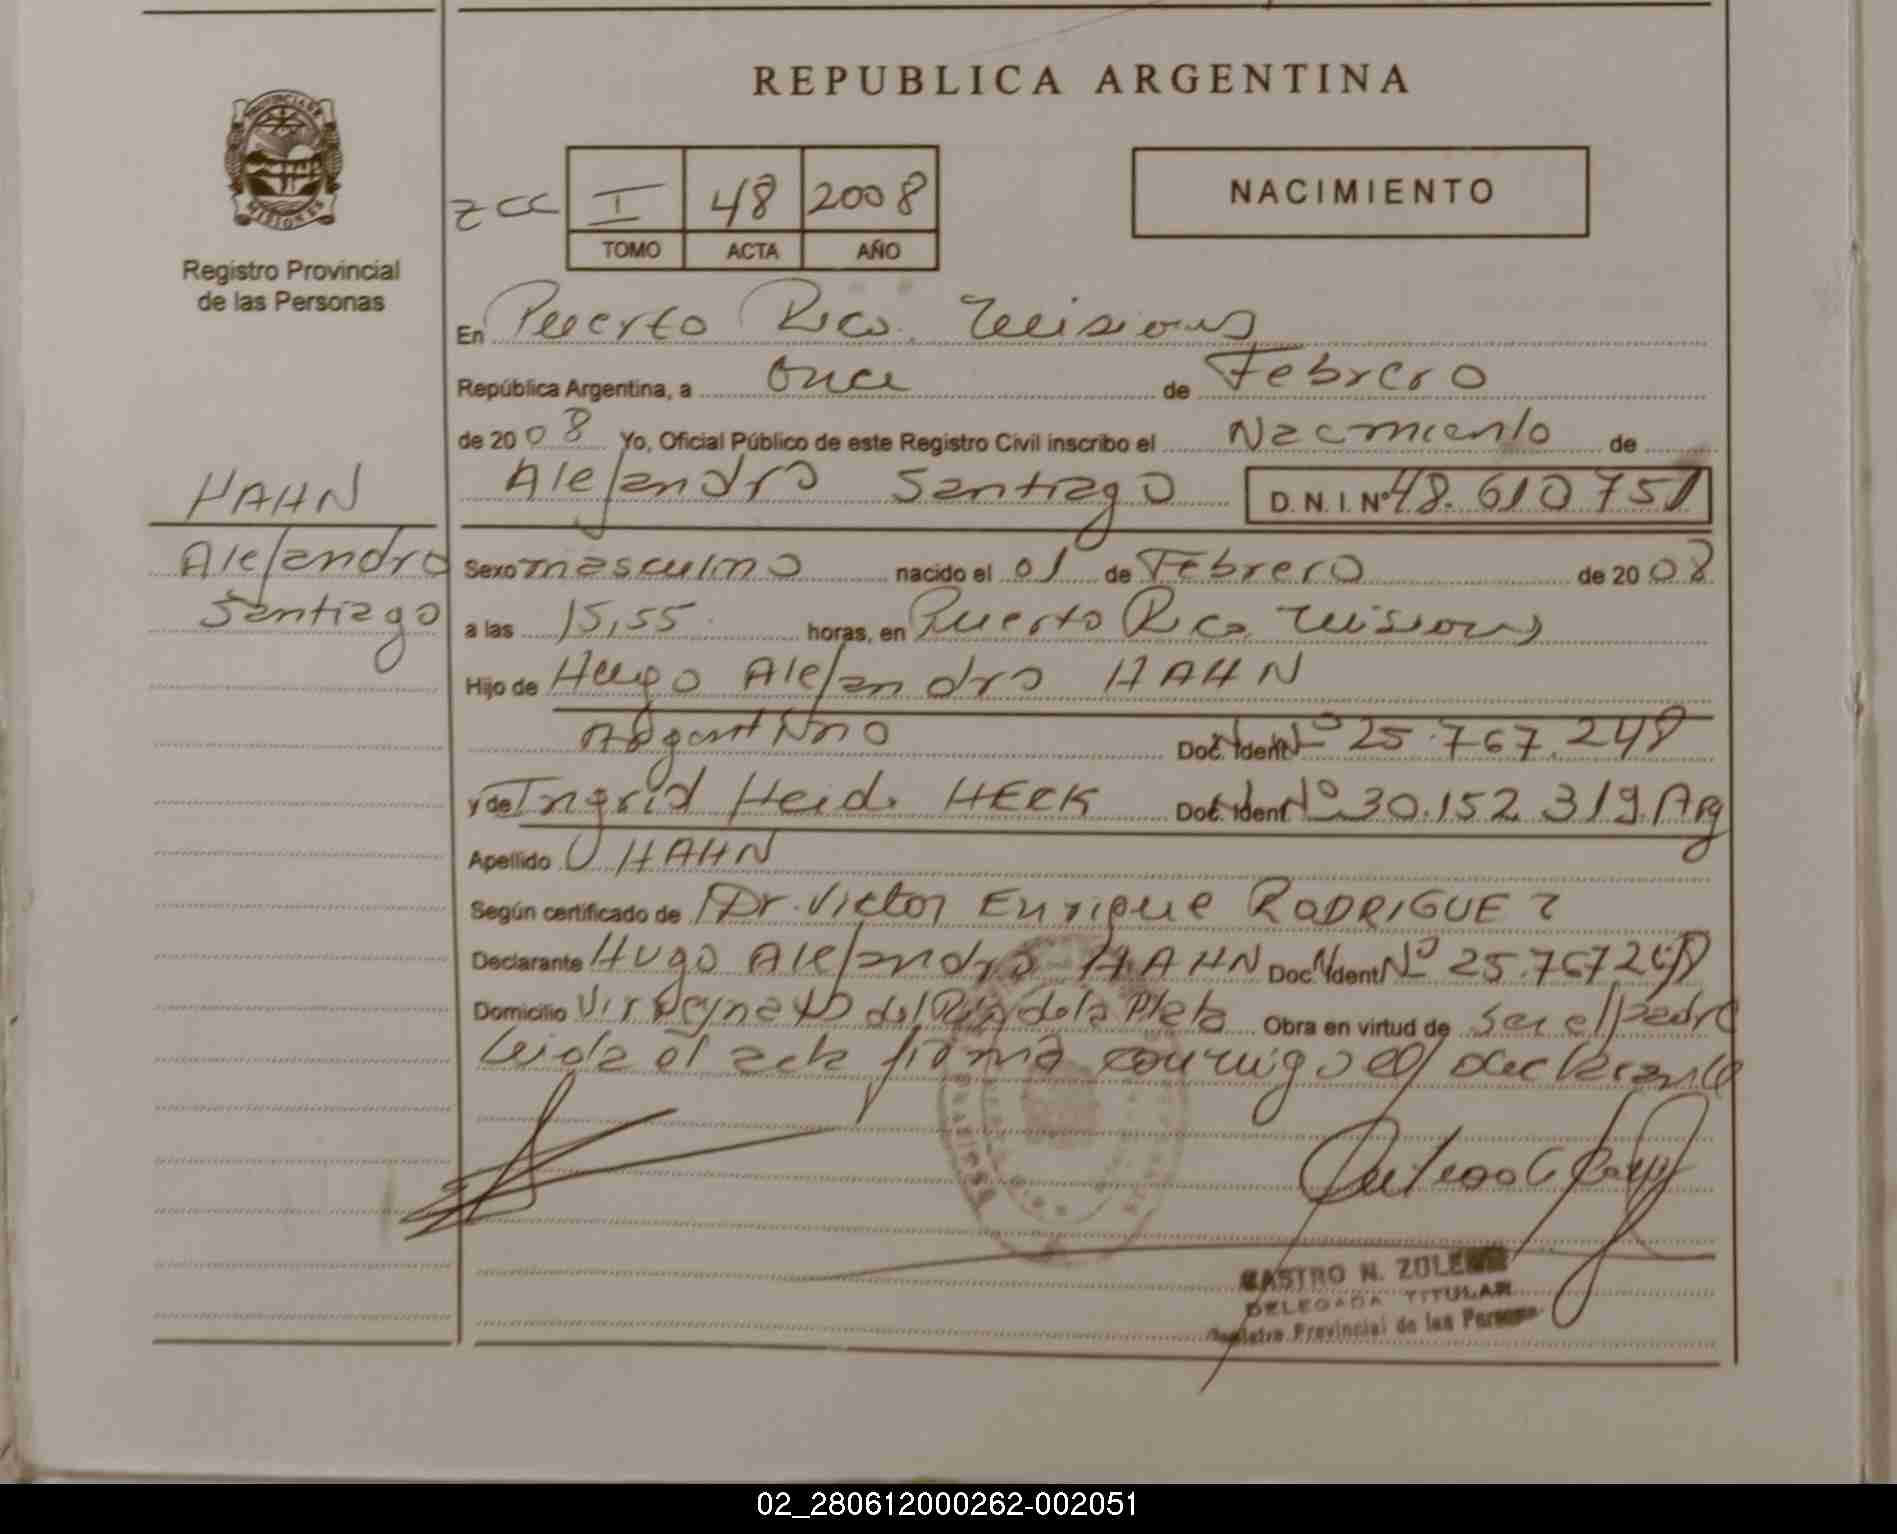 REPUBLICA ARGENTINA
PROVINCIA DE
MISIONES
Registro Provincial
de las Personas
I 48 2008
TOMO ACTA AÑO
NACIMIENTO
En Puerto Rico. Misiones
República Argentina, a Once de Febrero
de 2008 Yo, Oficial Público de este Registro Civil inscribo el Nacimiento de
Alejandro Santiago D.N.I. Nº 48.610751
HAHN
Alejandro
Santiago
Sexo masculino nacido el 01 de Febrero de 2008
a las 15,55 horas, en Puerto Rico Misiones
Hijo de Hugo Alejandro HAHN
Argentino Doc. Ident Nº 25.767.248
y de Ingrid Heidi HECK Doc. Ident Nº 30.152.319. Arg
Apellido HAHN
Según certificado de Dr. Victor Enrique RODRIGUEZ
Declarante Hugo Alejandro HAHN Doc. Ident Nº 25.767248
Domicilio Virreynato del Rio de la Plata Obra en virtud de ser el padre
Leida el acta firma conmigo el declarante
CASTRO N. ZULEMA
DELEGADA TITULAR
Registro Provincial de las Personas
02_280612000262-002051